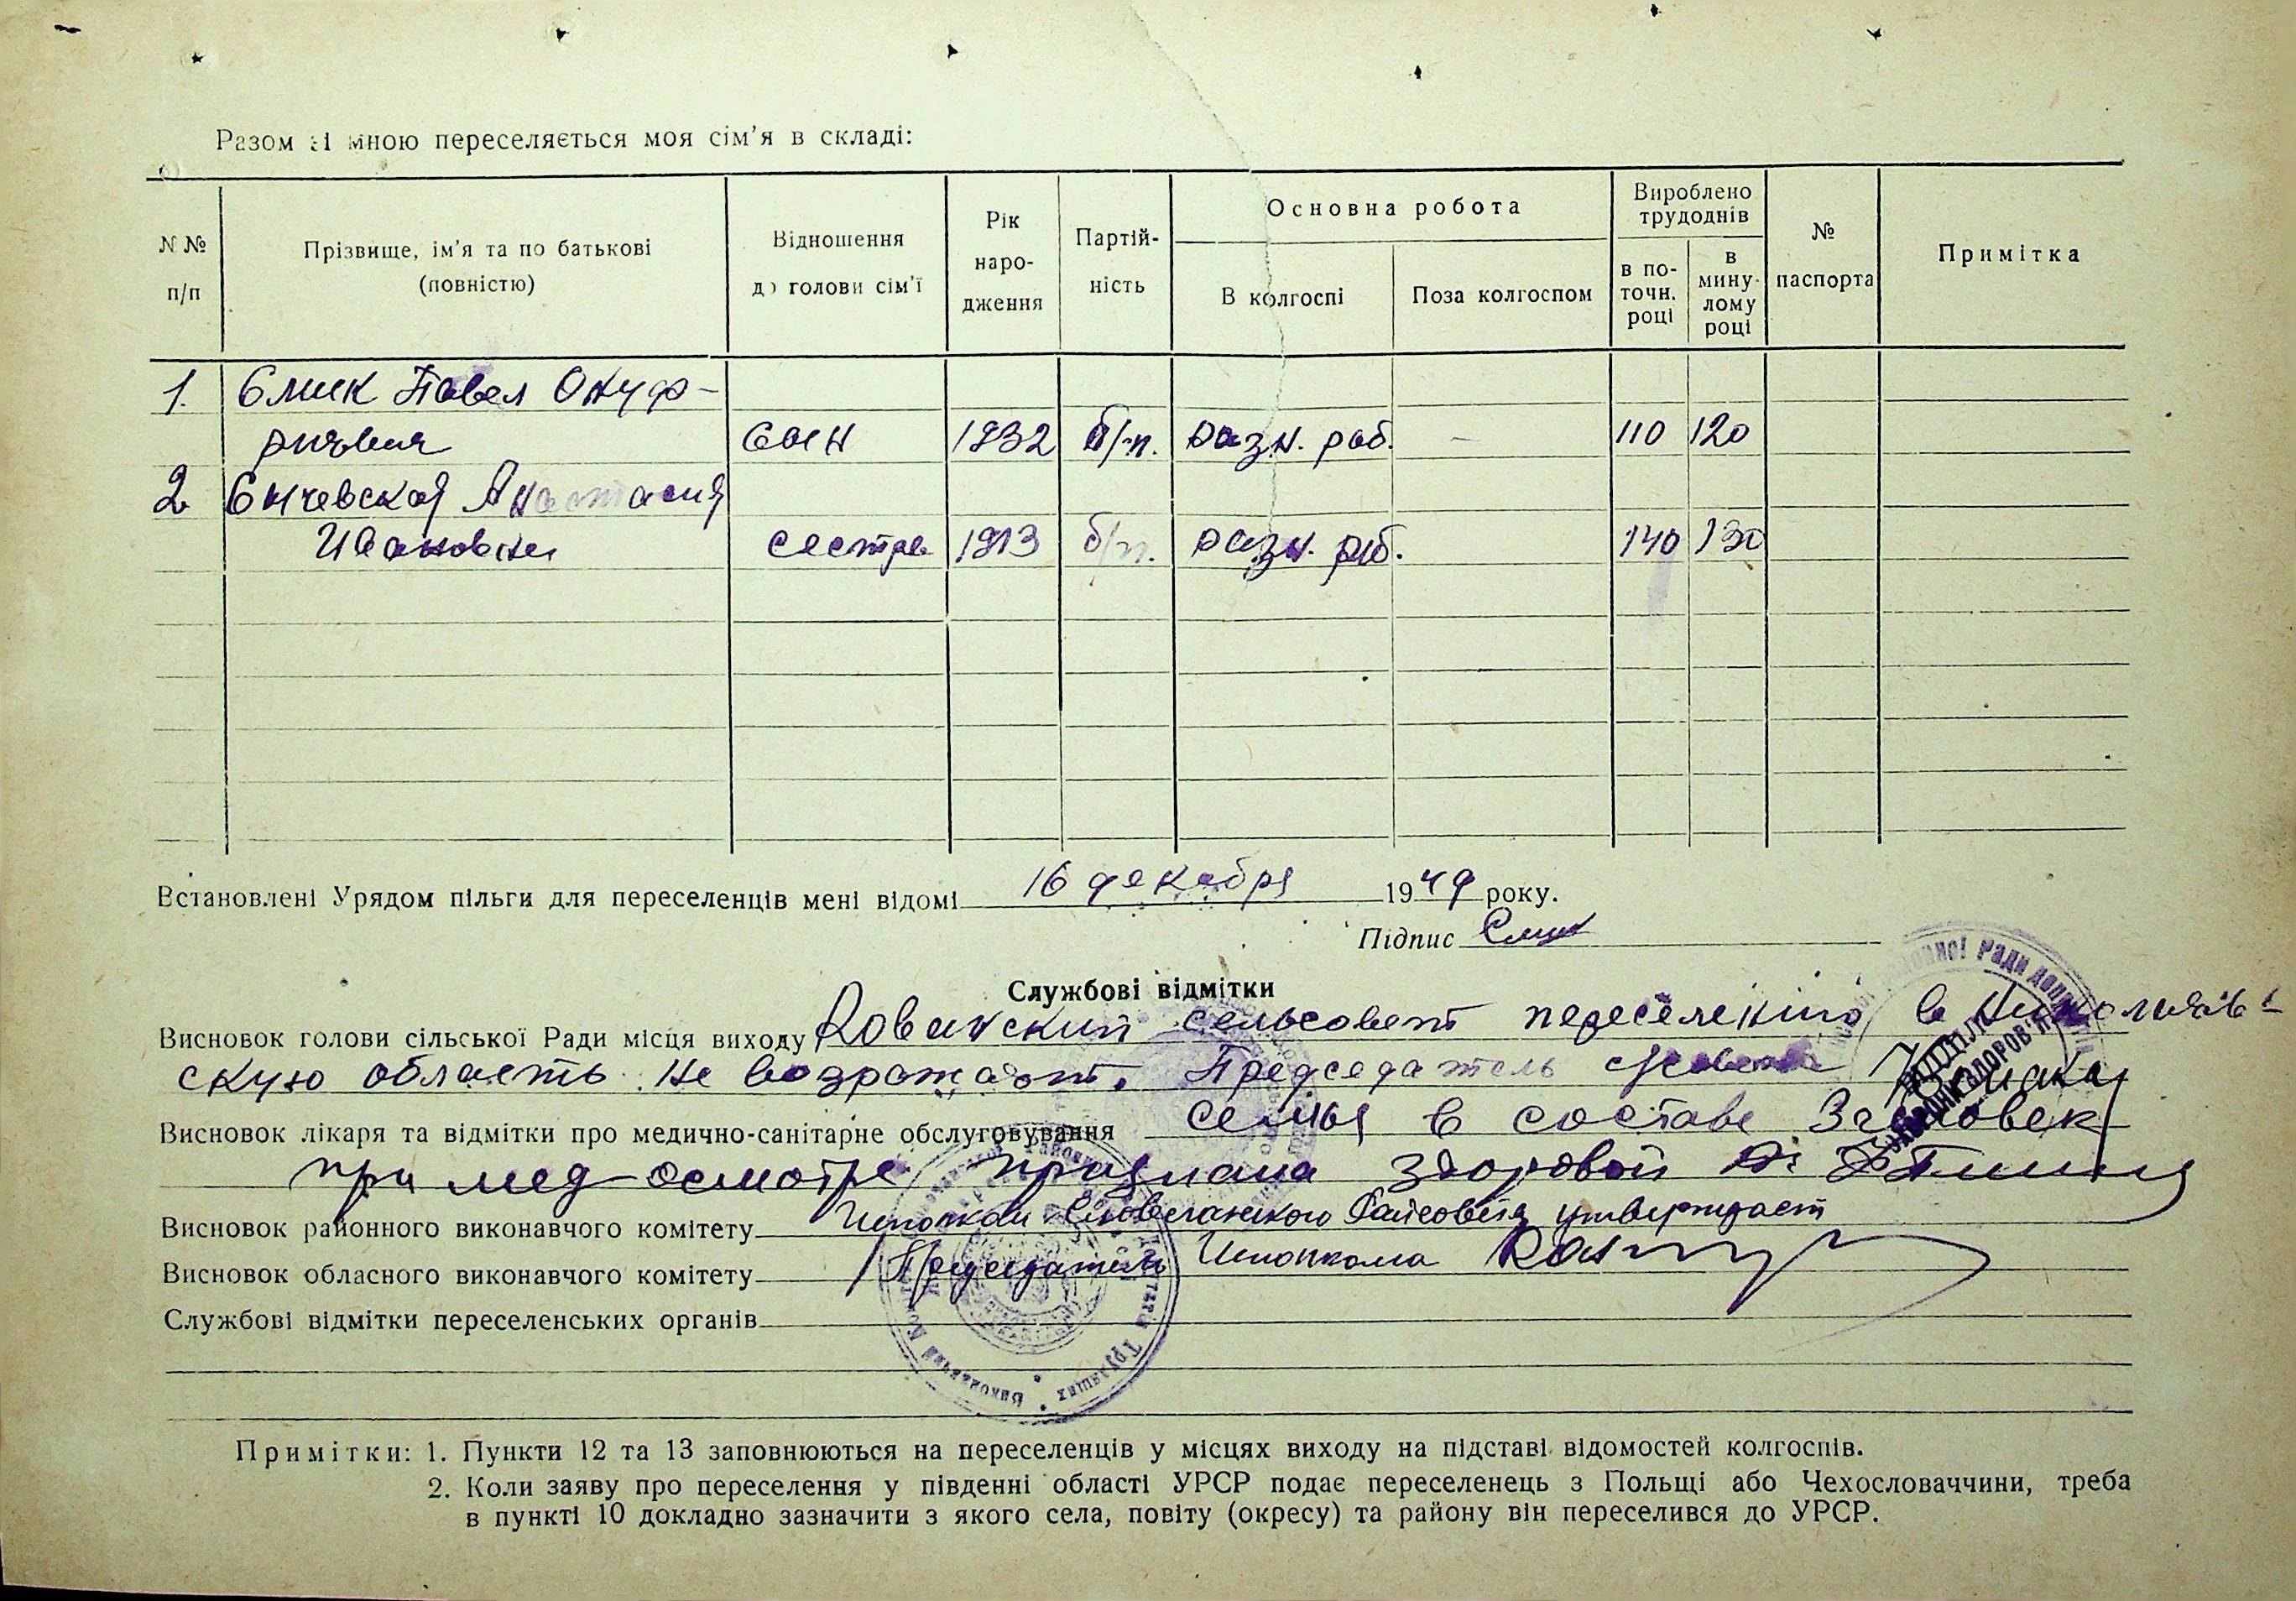 Разом зі мною переселяється моя сім'я в складі:
N№ п/п
Прізвище, ім'я та по батькові (повністю)
Відношення до голови сім'ї
Рік народження
Партій-
ність
Основна робота
В колгоспі
Поза колгоспом
Вироблено трудоднів
в по-
точн.
році
в
мину-
лому
році
№ паспорта
Примітка
1. Смик Павел Онуф-
риевич сын 1932 б/п. разн. раб. – 110 120
2 Сычевская Анастасия
Ивановна сестра 1913 б/п. разн. раб. 140 130
Встановлені Урядом пільги для переселенців мені відомі 16 декабря 1949 року.
Підпис Смик
Службові відмітки
Висновок голови сільської Ради місця виходу сельсовет в Николаев-
скую область не возражает. Председатель
Висновок лікаря та відмітки про медично-санітарне обслуговування семья в составе 3 человек
при мед-осмотре признана здоровой
Висновок районного виконавчого комітету Исполком Райсовета утверждает
Висновок обласного виконавчого комітету Председатель Исполкома
Службові відмітки переселенських органів
Примітки: 1. Пункти 12 та 13 заповнюються на переселенців у місцях виходу на підставі відомостей колгоспів.
2. Коли заяву про переселення у південні області УРСР подає переселенець з Польщі або Чехословаччини, треба
в пункті 10 докладно зазначити з якого села, повіту (окресу) та району він переселився до УРСР.